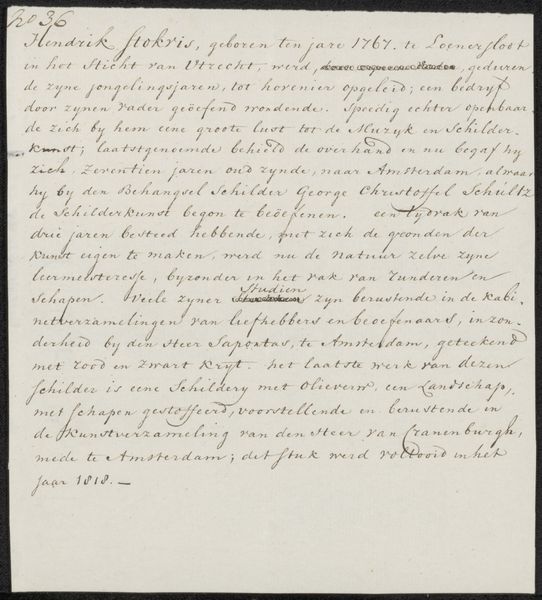 No 36
Hendrik Stokvis, geboren ten jare 1767. te Loenersloot
in het Sticht van Utrecht, werd, geduren
de zyne jongelingsjaren, tot hovenier opgeleid; een bedryf
door zynen vader geöefend wordende. Spoedig echter openbaar
de zich by hem eene groote lust tot de Muzyk en Schilder-
kunst; laatstgenoemde behield de overhand en nu begaf hy
zich, zeventien jaren oud zynde, naar Amsterdam, alwaar
hy by den Behangsel Schilder George Chrestoffel Schultz
de Schilderkunst begon te beöefenen. een tydvak van
drie jaren besteed hebbende, met zich de gronden der
Kunst eigen te maken, werd nu de Natuur zelve zyne
leermeesteresse, byzonder in het vak van Runderen en
Schapen. Veele zyner Studien zyn berustende in de kabi-
netverzamelingen van liefhebbers en beoefenaars, in zon-
derheid by den Heer Saportas, te Amsterdam, geteekend
met rood en zwart kryt. het laatste werk van dezen
Schilder is eene Schildery met Olieverw, een Landschap,
met schapen gestoffeerd, voorstellende en berustende in
de Kunstverzameling van den Heer van Cranenburgh,
mede te Amsterdam; dit stuk werd voltooid in het
jaar 1818. —